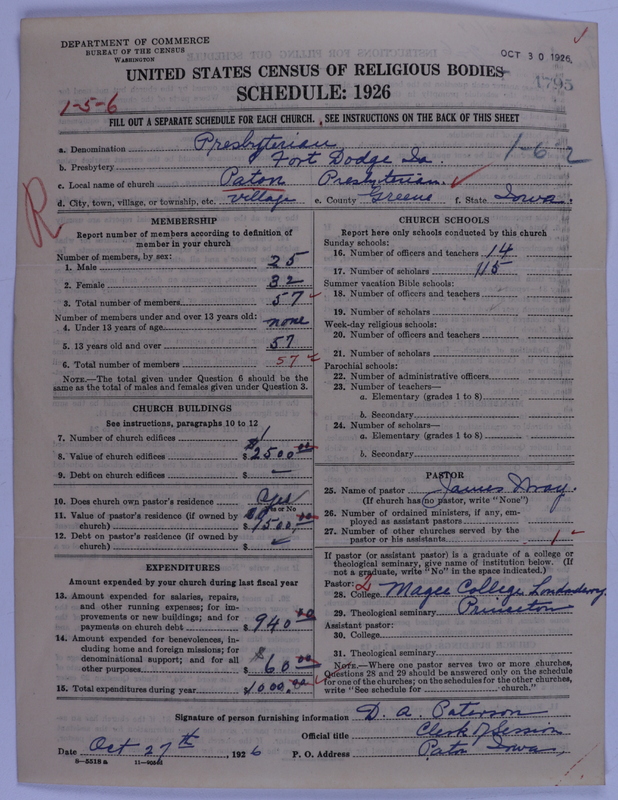 DEPARTMENT OF COMMERCE
BUREAU OF THE CENSUS
WASHINGTON
OCT 30 1926
UNITED STATES CENSUS OF RELIGIOUS BODIES
1795
SCHEDULE: 1926
1-5-6
FILL OUT A SEPARATE SCHEDULE FOR EACH CHURCH. SEE INSTRUCTIONS ON THE BACK OF THIS SHEET
a. Denomination Presbyterian
1-6 2
b. Presbytery Fort Dodge Ia.
c. Local name of church Paton Presbyterian.
d. City, town, village, or township, etc. village e. County Greene f. State Iowa.
R
MEMBERSHIP
Report number of members according to definition of
member in your church
Number of members, by sex:
1. Male 25
2. Female 32
3. Total number of members 57
Number of members under and over 13 years old:
4. Under 13 years of age none
5. 13 years old and over 57
6. Total number of members 57
NOTE.—The total given under Question 6 should be the
same as the total of males and females given under Question 3.
CHURCH BUILDINGS
See instructions, paragraphs 10 to 12
7. Number of church edifices 1
8. Value of church edifices $2500.00
9. Debt on church edifices $ —
10. Does church own pastor's residence yes
Yes or No
11. Value of pastor's residence (if owned by
church) $1500.00
12. Debt on pastor's residence (if owned by
church) $
EXPENDITURES
Amount expended by your church during last fiscal year
13. Amount expended for salaries, repairs,
and other running expenses; for im-
provements or new buildings; and for
payments on church debt $ 940.00
14. Amount expended for benevolences, in-
cluding home and foreign missions; for
denominational support; and for all
other purposes $ 60.00
15. Total expenditures during year $1000.00
CHURCH SCHOOLS
Report here only schools conducted by this church
Sunday schools:
16. Number of officers and teachers 14
17. Number of scholars 115
Summer vacation Bible schools:
18. Number of officers and teachers
19. Number of scholars
Week-day religious schools:
20. Number of officers and teachers
21. Number of scholars
Parochial schools:
22. Number of administrative officers
23. Number of teachers—
a. Elementary (grades 1 to 8)
b. Secondary
24. Number of scholars—
a. Elementary (grades 1 to 8)
b. Secondary
PASTOR
25. Name of pastor James Wray.
(If church has no pastor, write "None")
26. Number of ordained ministers, if any, em-
ployed as assistant pastors
27. Number of other churches served by the
pastor or his assistants 1
If pastor (or assistant pastor) is a graduate of a college or
theological seminary, give name of institution below. (If
not a graduate, write "No" in the space indicated.)
Pastor: 2
28. College Magee College Londonderry
29. Theological seminary Princeton
Assistant pastor:
30. College
31. Theological seminary
NOTE.—Where one pastor serves two or more churches,
Questions 28 and 29 should be answered only on the schedule
for one of the churches; on the schedules for the other churches,
write "See schedule for church."
Signature of person furnishing information D. A. Paterson
Official title Clerk of Session
Date Oct 27th, 1926 P. O. Address Paton Iowa
8-5518a